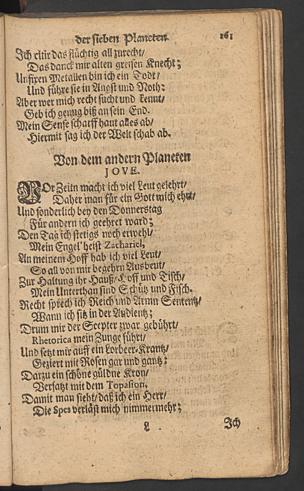 der sieben Planeten. 161
Ich citir das flüchtig all zurecht/
Das danck mir alten greisen Knecht;
Unfixen Metallen bin ich ein Todt/
Und führe sie in Angst und Noth:
Aber wer mich recht sucht und kennt/
Geb ich genug biß an sein End.
Mein Sense scharff haut alles ab/
Hiermit sag ich der Welt schab ab.
Von dem andern Planeten
JOVE.
VOr Zeitn macht ich viel Leut gelehrt/
Daher man für ein Gott mich ehrt/
Und sonderlich bey den Donnerstag
Für andern ich geehret ward;
Den Tag ich stetigs noch erwehl/
Mein Engel heist Zachariel,
An meinem Hoff hab ich viel Leut/
So all von mir begehrn Ausbeut/
Zur Haltung ihr Hauß/ Hoff und Tisch/
Mein Unterthan sind Schütz und Fisch.
Recht sprech ich Reich und Armn Sententz/
Wann ich sitz in der Audientz;
Drum mir der Scepter zwar gebührt/
Rhetorica mein Zunge führt/
Und setzt mir auff ein Lorbeer-Krantz/
Geziert mit Rosen gar und gantz;
Darzu ein schöne güldne Kron/
Versatzt mit dem Topasion.
Damit man sieht/ daß ich ein Herr/
Die Spes verläst mich nimmermehr;
L Ich